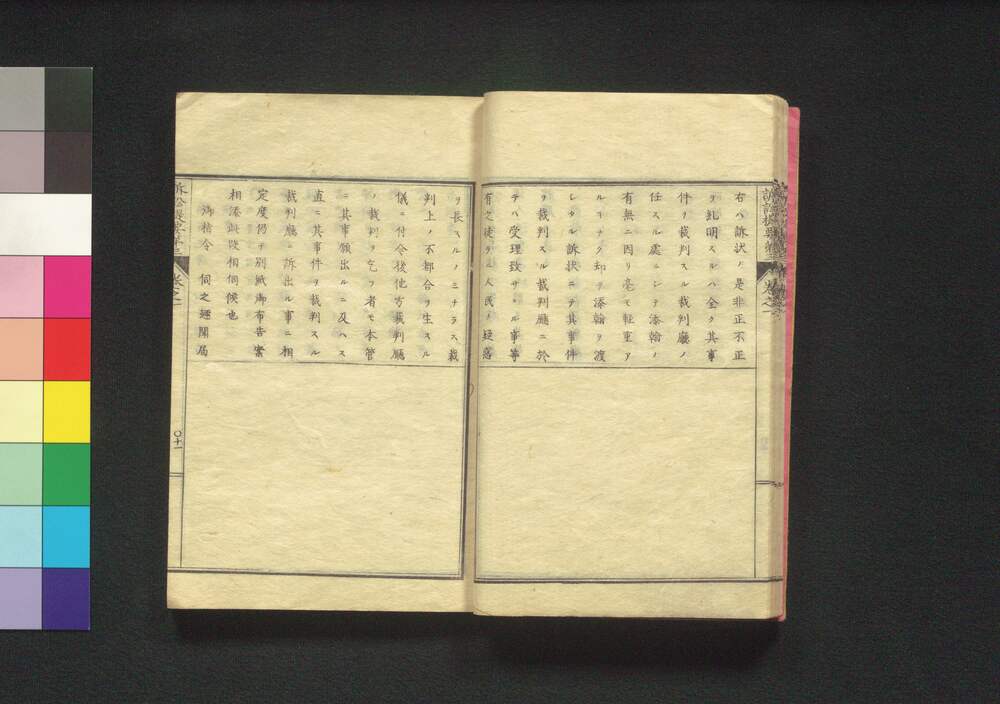 右ハ訴状ノ是非正不正
ヲ糺明スルハ全ク其事
件ヲ裁判スル裁判廳ノ
任スル處ニシテ添翰ノ
有無ニ因リ毫モ軽重ア
ルヿナク却テ添翰ヲ渡
シタル訴状ニテ其事件
ヲ裁判スル裁判廳ニ於
テハ受理致サヽル事等
有之徒ラニ人民ノ疑惑
ヲ長スルノミナラス裁
判上ノ不都合ヲ生スル
儀ニ付令後他方裁判廳
ノ裁判ヲ乞フ者モ本管
ニ其事願出ルニ及ハス
直ニ其事件ヲ裁判スル
裁判廳ニ訴出ル事ニ相
定度仍テ別紙御布告案
相添此段相伺候也
御指令 伺之趣聞届
卷之一
〇十一